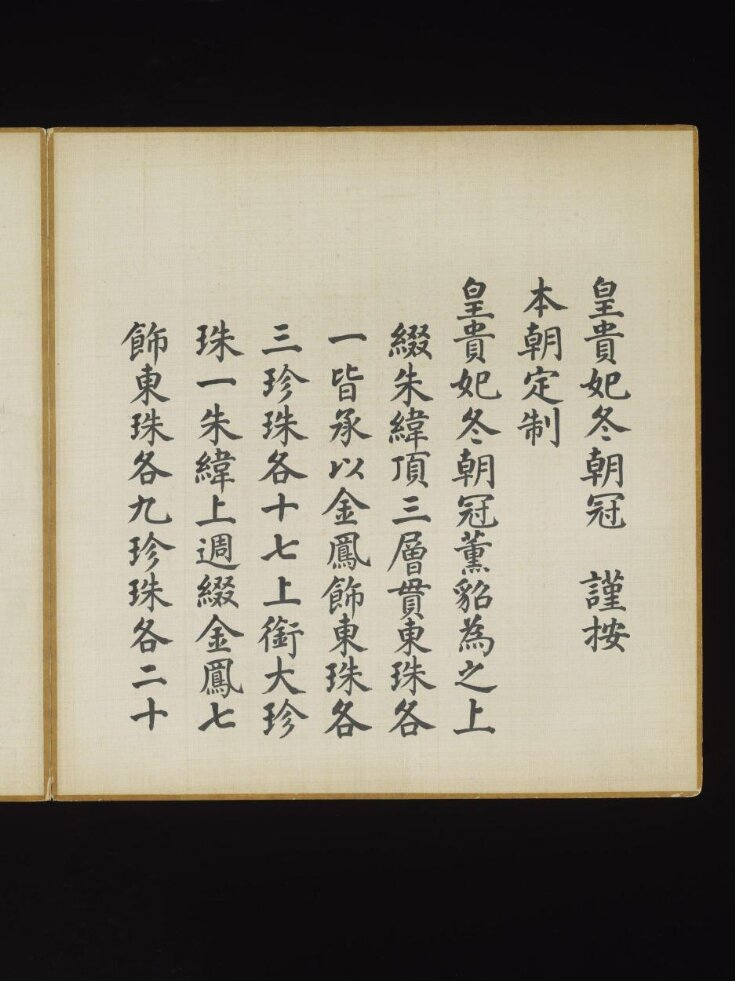 皇貴妃冬朝冠　謹按
本朝定制
皇貴妃冬朝冠薰貂為之上
綴朱緯頂三層貫東珠各
一皆承以金鳳飾東珠各
三珍珠各十七上銜大珍
珠一朱緯上週綴金鳳七
飾東珠各九珍珠各二十